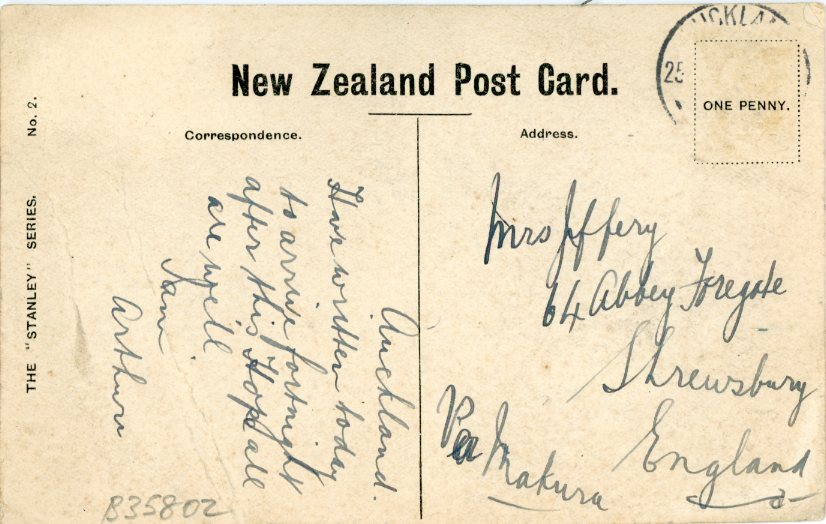 New Zealand Post Card.
Correspondence.
Address.
ONE PENNY.
25
THE "STANLEY" SERIES. No. 2.
Auckland.
Have written today
to arrive fortnight
after this Hope all
are well
Arthur
Mrs Jeffery
64 Abbey Foregate
Shrewsbury
England
Per Makura
B35802